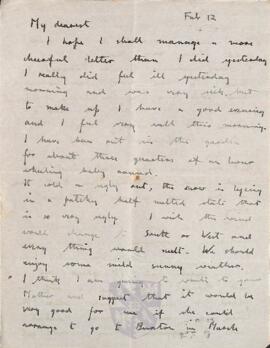 Feb 12
My dearest
I hope I shall manage a more
cheerful letter than I did yesterday
I really did feel ill yesterday
morning and was very sick but
to make up I have a good evening
and I feel very well this morning.
I have been out in the garden
for about three quarters of an hour
wheeling baby around.
It cold & ugly out, the snow is lying
in a patchy half melted state that
is so very ugly. I wish the wind
would change to South or West and
every thing would melt. We should
enjoy some mild sunny weather.
I think I am going to write to your
Mother and suggest that it would be
very good for me if she could
arrange to go to Buxton in March